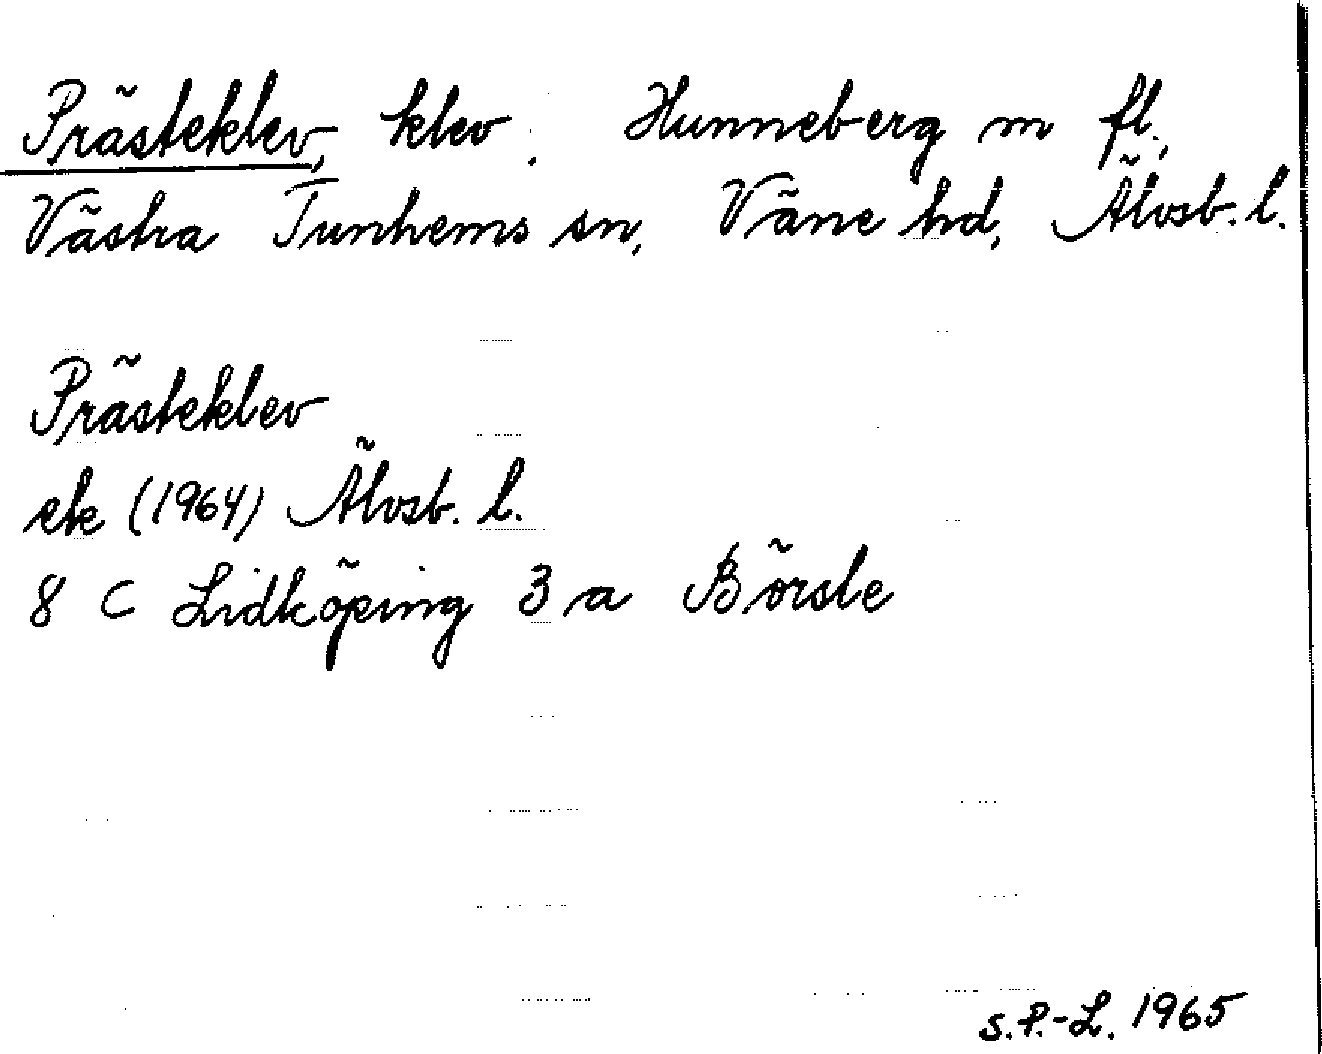 Prästeklev, klev. Hunneberg m fl.,
Västra Tunhems sn, Väne hd, Älvsb. l.
Prästeklev
ek (1964) Älvsb. l.
8 C Lidköping 3 a Börsle
S.P.-L. 1965